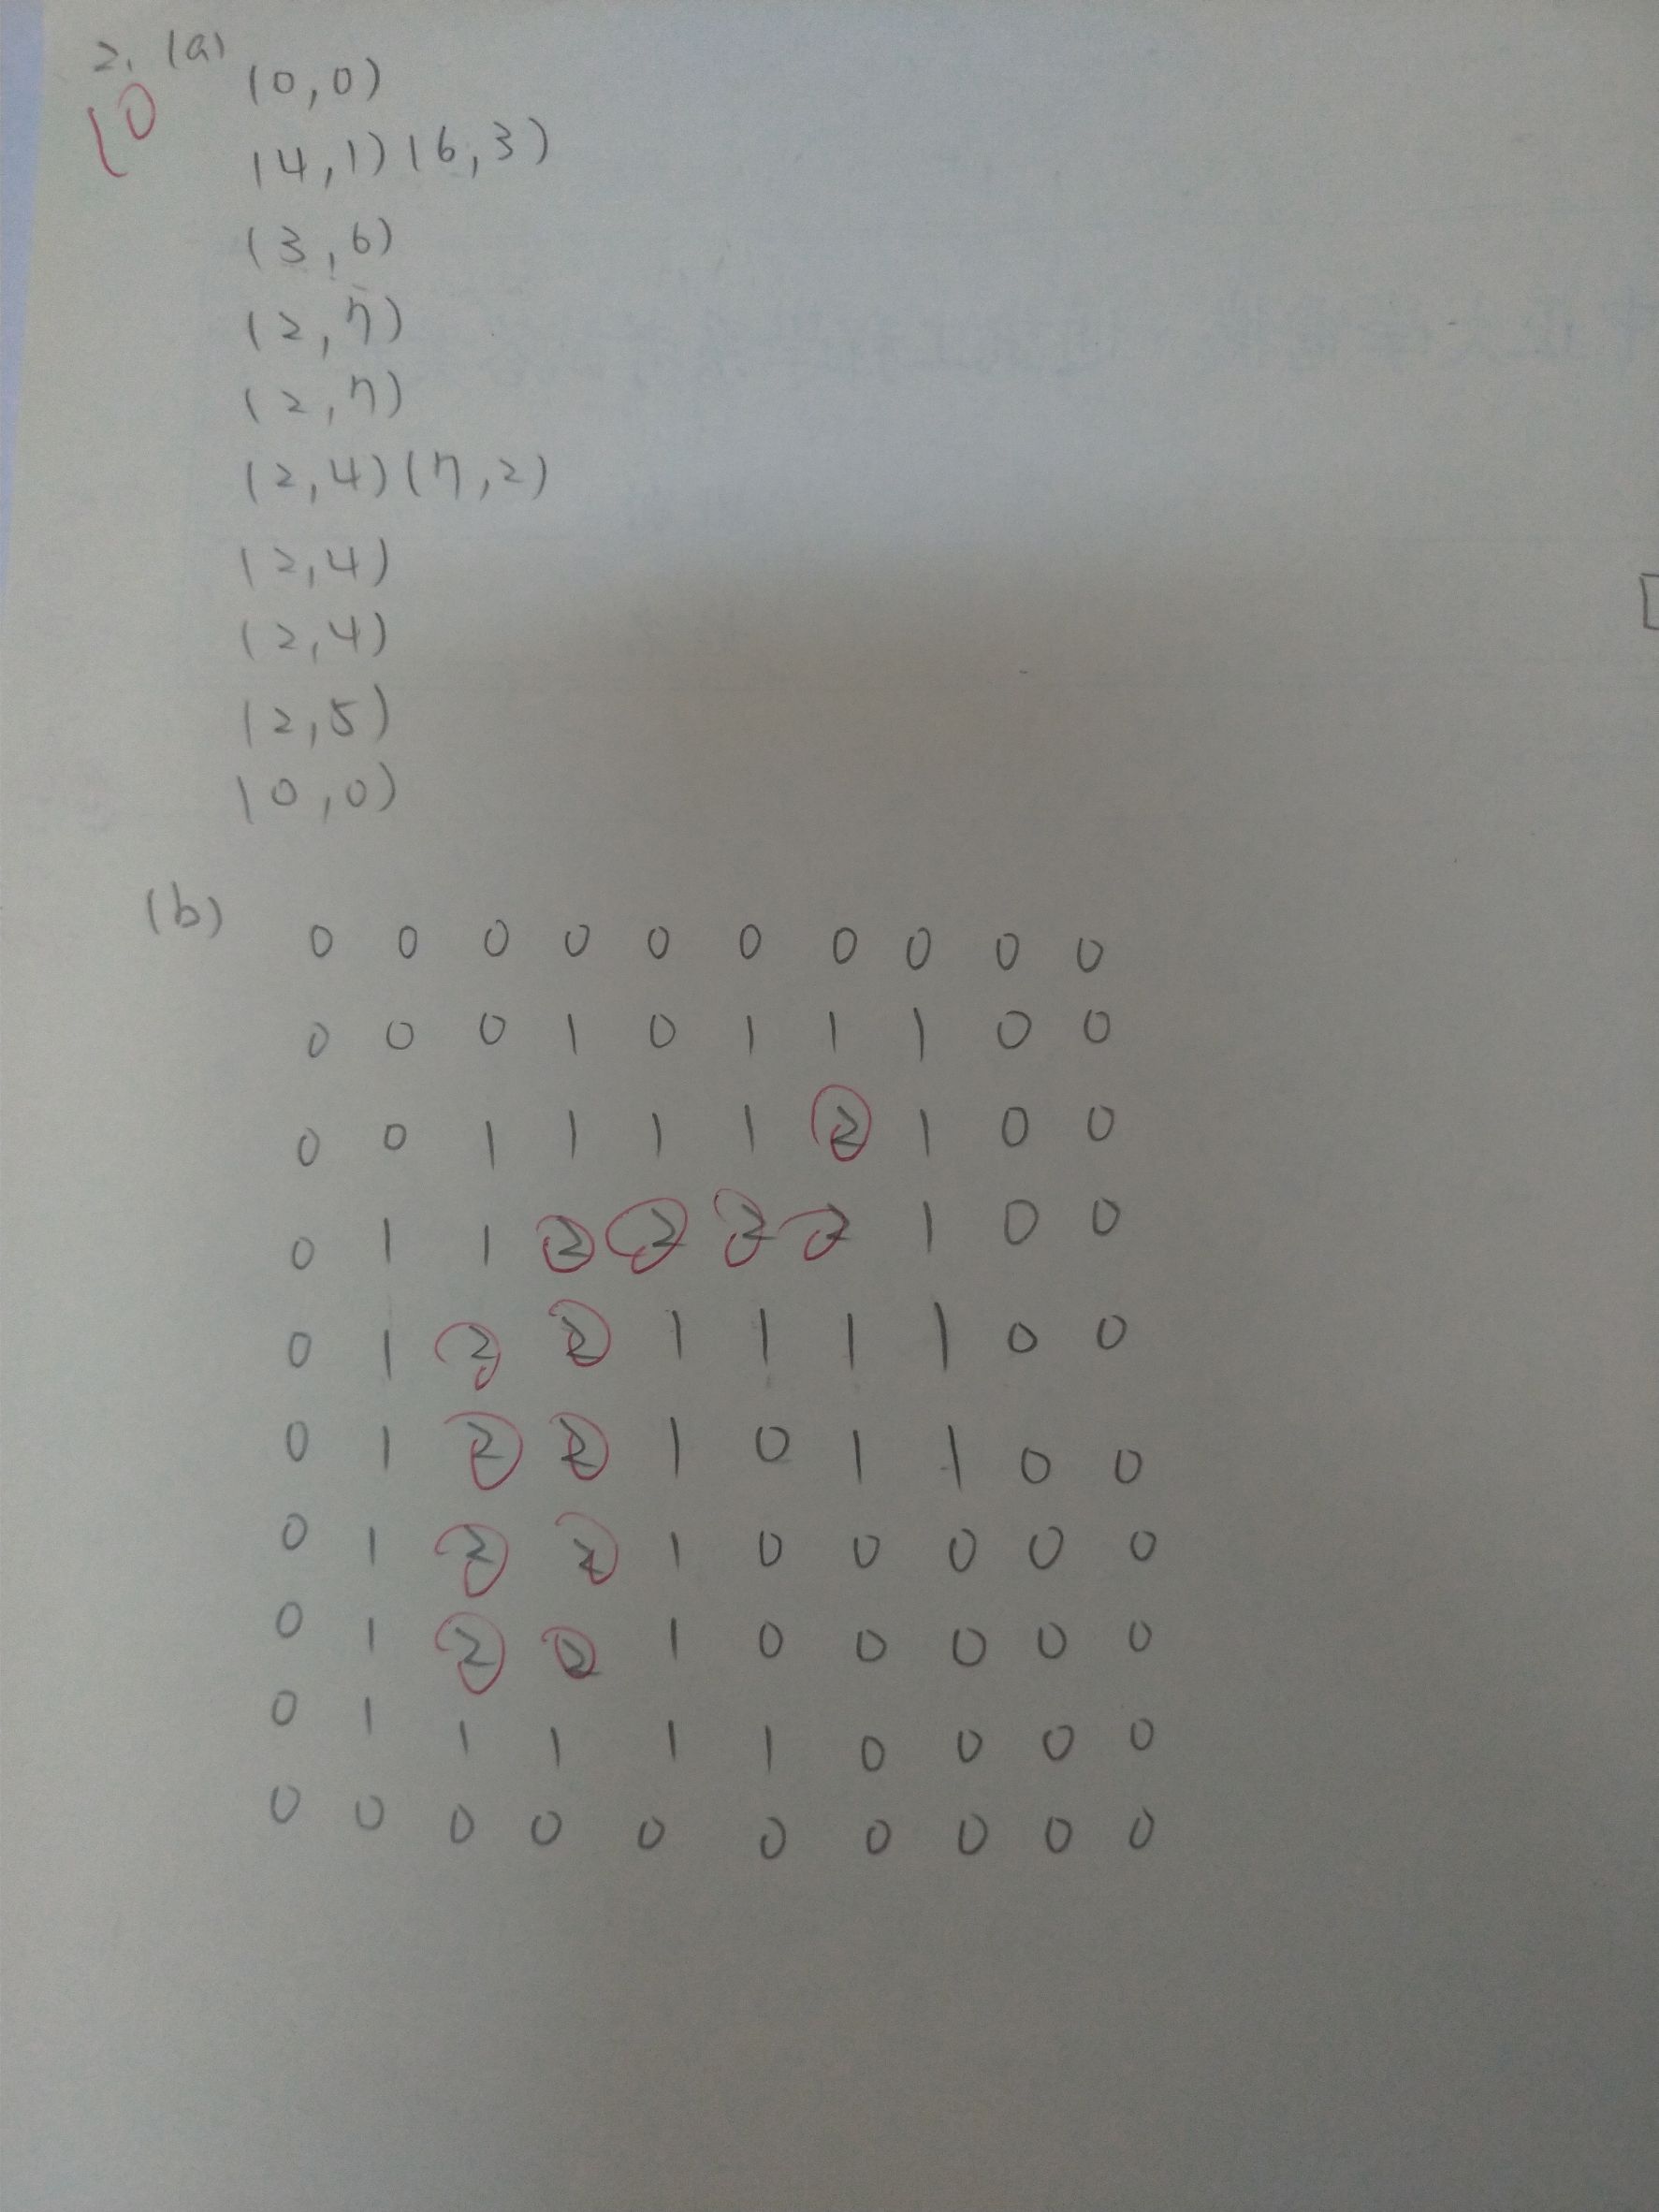 2. (a)
10
(0,0)
(4,1)(6,3)
(3,6)
(2,7)
(2,7)
(2,4)(7,2)
(2,4)
(2,4)
(2,5)
(0,0)
(b)
0 0 0 0 0 0 0 0 0 0
0 0 0 1 0 1 1 1 0 0
0 0 1 1 1 1 2 1 0 0
0 1 1 2 2 2 2 1 0 0
0 1 2 2 1 1 1 1 0 0
0 1 2 2 1 0 1 1 0 0
0 1 2 2 1 0 0 0 0 0
0 1 2 2 1 0 0 0 0 0
0 1 1 1 1 1 0 0 0 0
0 0 0 0 0 0 0 0 0 0